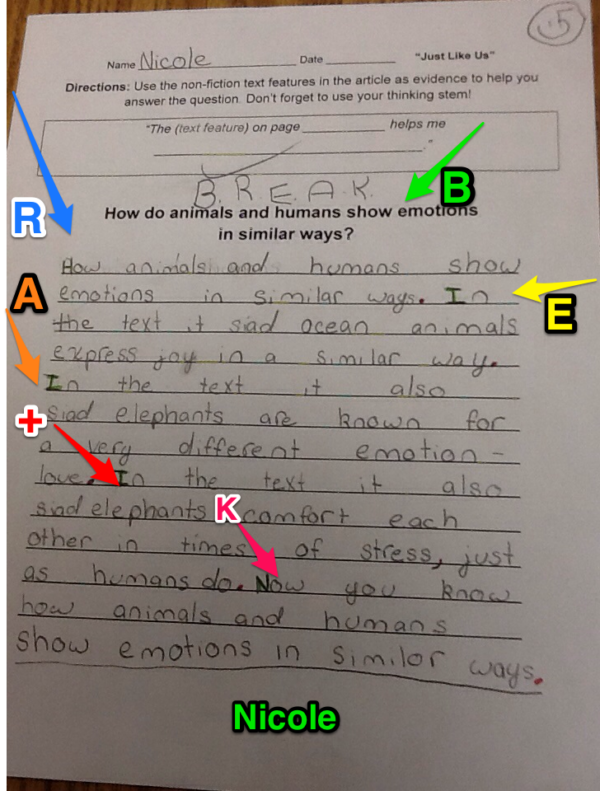 .5
Name Nicole Date ________ "Just Like Us"
Directions: Use the non-fiction text features in the article as evidence to help you
answer the question. Don't forget to use your thinking stem!
"The (text feature) on page ________ helps me
________."
B.R.E.A.K.
B
How do animals and humans show emotions
in similar ways?
R
How animals and humans show
A
emotions in similar ways. In
E
the text it siad ocean animals
express joy in a similar way.
In the text it also
+
siad elephants are known for
a very different emotion -
love. In the text it also
K
siad elephants comfort each
other in times of stress, just
as humans do. Now you know
how animals and humans
show emotions in similor ways.
Nicole